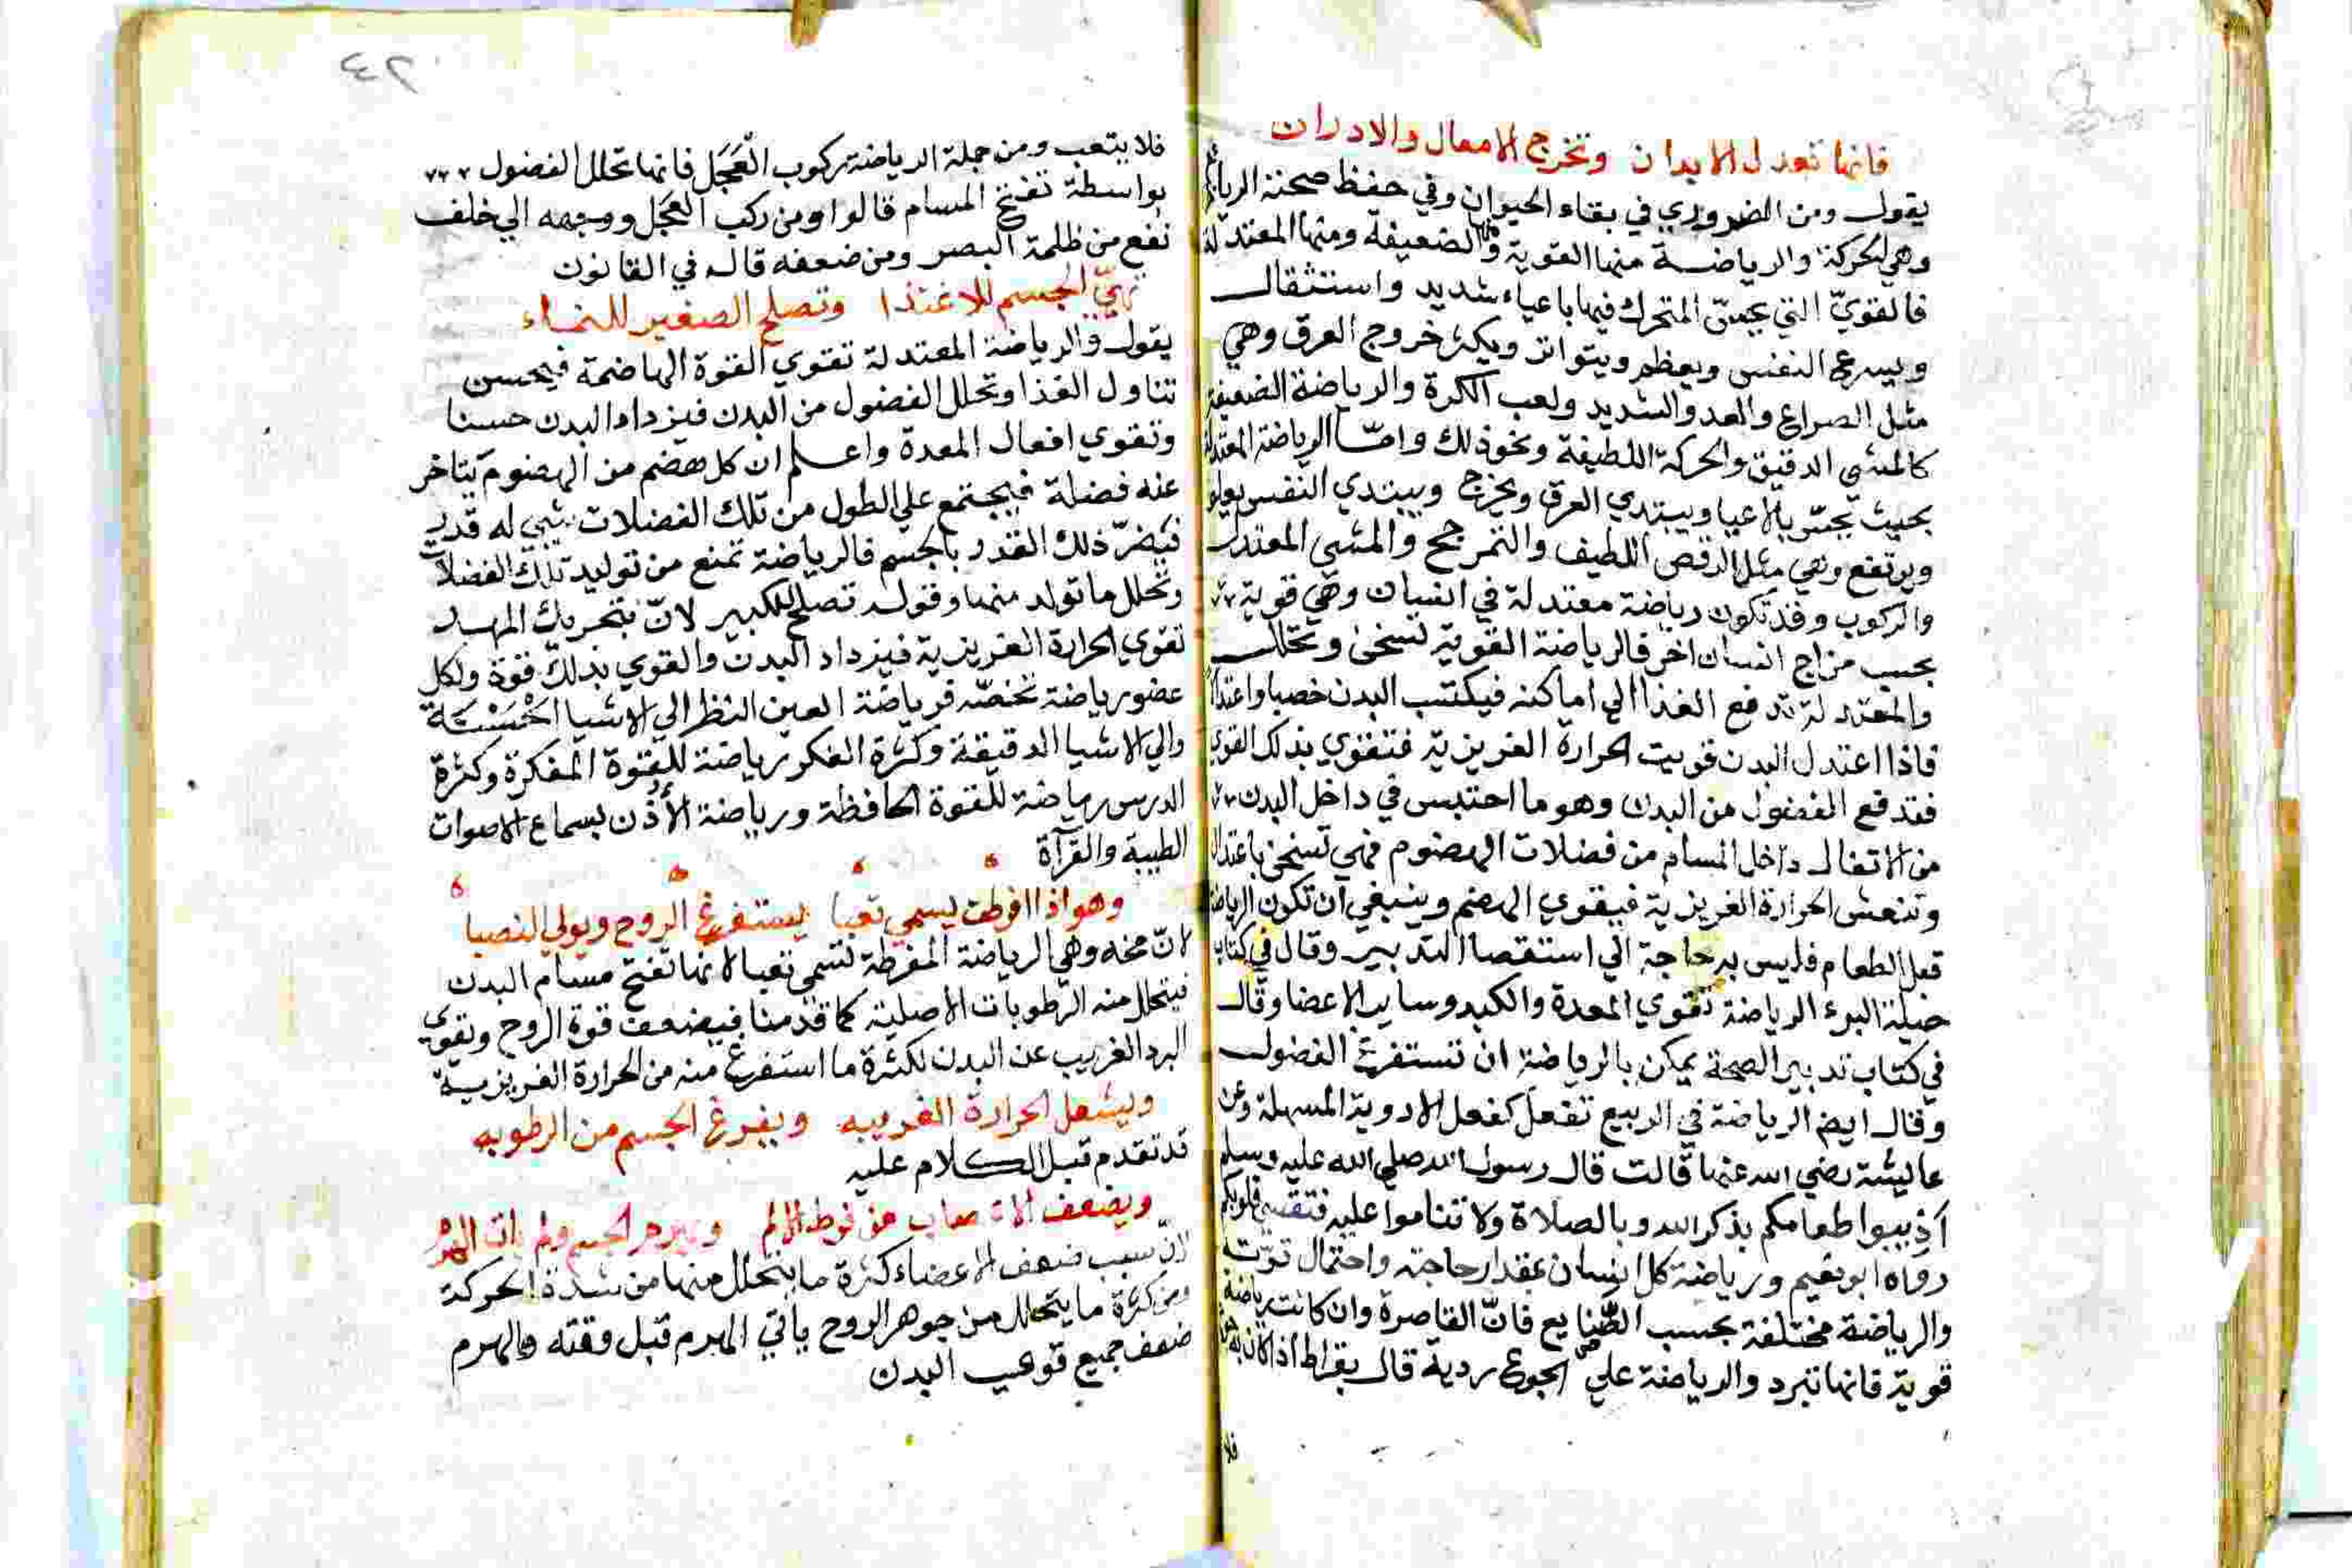 فانها تعدل الابدان وتخرج الامعال والادران
يقول ومن الضروري في بقاء الحيوان وفي حفظ صحته الرياضة
وهي الحركة والرياضة منها القوية ومنها الضعيفة ومنها المعتدلة
فالقويّ التي يحسّ المتحرك فيها باعياء شديد واستثقال
ويسرع النفس ويعظم ويتواتر ويكثر خروج العرق وهي
مثل الصراع والعدو الشديد ولعب الكرة والرياضة الضعيفة
كالمشي الدقيق والحركة اللطيفة ونحو ذلك وامّا الرياضة المعتدلة
بحيث يحسّ بالاعيا ويبتدي العرق ويخرج ويبتدي النفس يعلو
ويرتفع وهي مثل الرقص اللطيف والتمرجح والمشي المعتدل
والركوب وقد تكون رياضة معتدلة في انسان وهي قوية
بحسب مزاج انسان اخر فالرياضة القوية تسخن وتحلل
والمعتدلة تدفع الغذا الي اماكنه فيكتسب البدن خصبا واعتدالا
فاذا اعتدل البدن قويت الحرارة الغريزية فتقوي بذلك القوي
فتدفع الفضول من البدن وهو ما احتبس في داخل البدن
من الاتفال داخل المسام من فضلات الهضوم فهي تسخن باعتدال
وتنعش الحرارة الغريزية فيقوي الهضم وينبغي ان تكون الرياضة
قبل الطعام فليس به حاجة الي استقصا التدبير وقال في كتاب
حيلة البرء الرياضة تقوي المعدة والكبد وساير الاعضا وقال
في كتاب تدبير الصحة يمكن بالرياضة ان تستفرغ الفضول
وقال ايضا الرياضة في الربيع تفعل كفعل الادوية المسهلة وعن
عايشة رضي الله عنها قالت قال رسول الله صلي الله عليه وسلم
أذيبوا طعامكم بذكر الله وبالصلاة ولا تناموا عليه فتقسي قلوبكم
رواه ابو نعيم ورياضة كل انسان بمقدار حاجته واحتمال قوّته
والرياضة مختلفة بحسب الصّنايع فانّ القاصرة وان كانت رياضة
قوية فانها تبرد والرياضة علي الجوع ردية قال بقراط اذا كان به جوع
فلا
٢٤
فلا يتعب ومن جملة الرياضة ركوب العَجَل فانها تحلل الفضول
بواسطة تفتح المسام قالوا ومن ركب العجل ووجهه الي خلف
نفع من ظلمة البصر ومن ضعفه قاله في القانون
تهيّي الجسم للاغتذا وتصلح الصغير للنماء
يقول والرياضة المعتدلة تقوي القوة الهاضمة فيحسن
تناول الغذا وتحلل الفضول من البدن فيزداد البدن حسنا
وتقوي افعال المعدة واعلم ان كل هضم من الهضوم يتاخر
عنه فضلة فيجتمع علي الطول من تلك الفضلات شي له قدر
فيضرّ ذلك القدر بالجسم فالرياضة تمنع من توليد تلك الفضلات
وتحلل ما تولد منها وقوله تصلح للكبير لانّ بتحريك المهد
تقوي الحرارة الغريزية فيزداد البدن والقوي بذلك قوة ولكل
عضو رياضة تخصّه فرياضة العين النظر الي الاشيا الحسنة
والي الاشيا الدقيقة وكثرة الفكر رياضة للقوة المفكرة وكثرة
الدرس رياضة للقوة الحافظة ورياضة الأذن بسماع الاصوات
الطيبة والقرآة
وهو اذا افرطت يسمي تعبا يستفرغ الروح ويولي النصبا
لانّ مخه وهي الرياضة المفرطة تسمي تعبا لانها تفتح مسام البدن
فيتحلل منه الرطوبات الاصلية كما قدمنا فيضعف قوة الروح وتقوي
البرد الغريب عن البدن لكثرة ما استفرغ منه من الحرارة الغريزية
ويشعل الحرارة الغريبه ويفرغ الجسم من الرطوبه
قد تقدم قبل الكلام عليه
ويضعف الاعصاب من فرط الالم ويهرم الجسم ولم يات الهرم
لانّ سبب ضعف الاعضاء كثرة ما يتحلل منها من شدة الحركة
ومن كثرة ما يتحلل من جوهر الروح يأتي الهرم قبل وقته والهرم
ضعف جميع قوي البدن